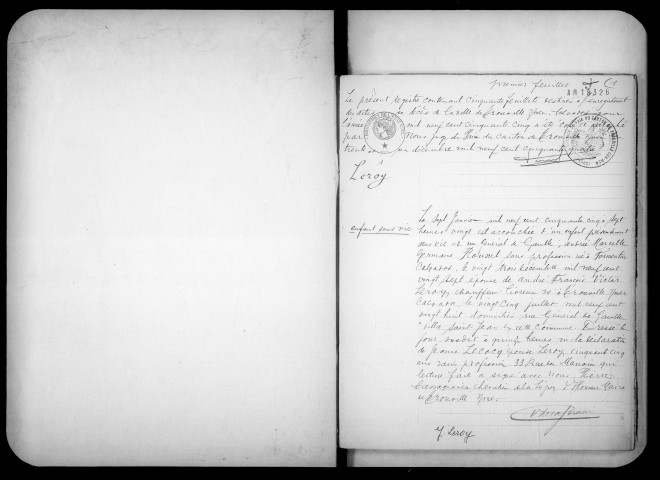 premier feuillet
AM 18326
Le présent registre contenant cinquante feuillets destinés à l'enregistrement
des actes de Décès de la ville de Trouville s/mer Calvados pour
l'année mil neuf cent cinquante cinq a été coté et paraphé
par Nous Juge du canton de Trouville
trente décembre mil neuf cent cinquante quatre
Leroy
enfant sans vie
Le sept Janvier mil neuf cent cinquante cinq à sept
heures vingt est accouchée d'un enfant présentement
sans vie rue Général de Gaulle, Andrée Marcelle
Germaine sans profession née à
Calvados, le vingt trois décembre mil neuf cent
vingt sept épouse de André François Victor
Leroy, chauffeur livreur né à Trouville s/mer
Calvados, le vingt cinq juillet mil neuf cent
vingt huit domiciliés rue Général de Gaulle
villa Saint Jean en cette commune. Dressé le
jour susdit à quinze heures sur la déclaration
de Jeanne Lecocq épouse Leroy, cinquante cinq
ans sans profession 33 Rue du Manoir qui
lecture faite a signé avec Nous, Pierre
Chevalier de la Légion d'Honneur Maire
de Trouville s/mer
J. Leroy